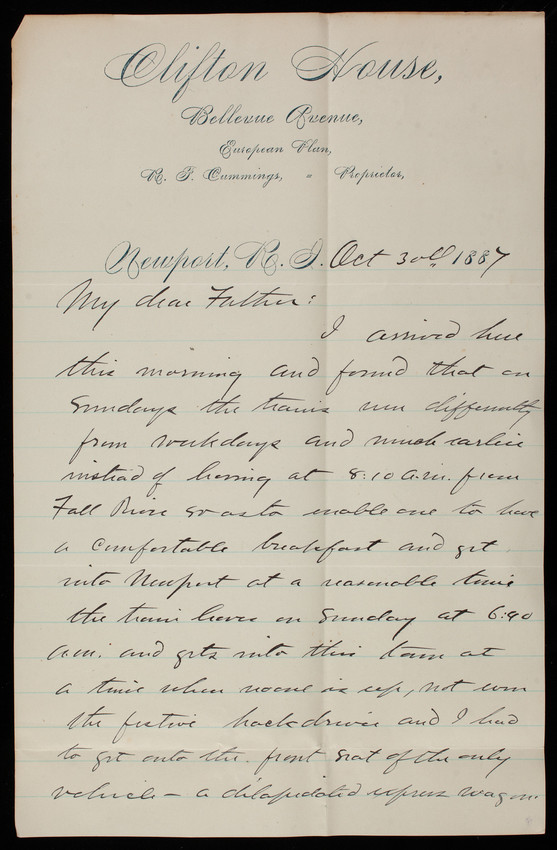 Clifton House,
Bellevue Avenue,
European Plan,
R. F. Cummings, Proprietor,
Newport, R. I. Oct 30th 1887
My dear Father:
I arrived here
this morning and found that on
Sundays the trains run differently
from weekdays and much earlier
instead of leaving at 8:10 a.m. from
Fall River so as to enable one to have
a comfortable breakfast and get
into Newport at a reasonable time
the train leaves on Sunday at 6:40
a.m. and gets into this town at
a time when no one is up, not even
the festive hackdriver and I had
to get onto the front seat of the only
vehicle – a dilapidated express wagon.